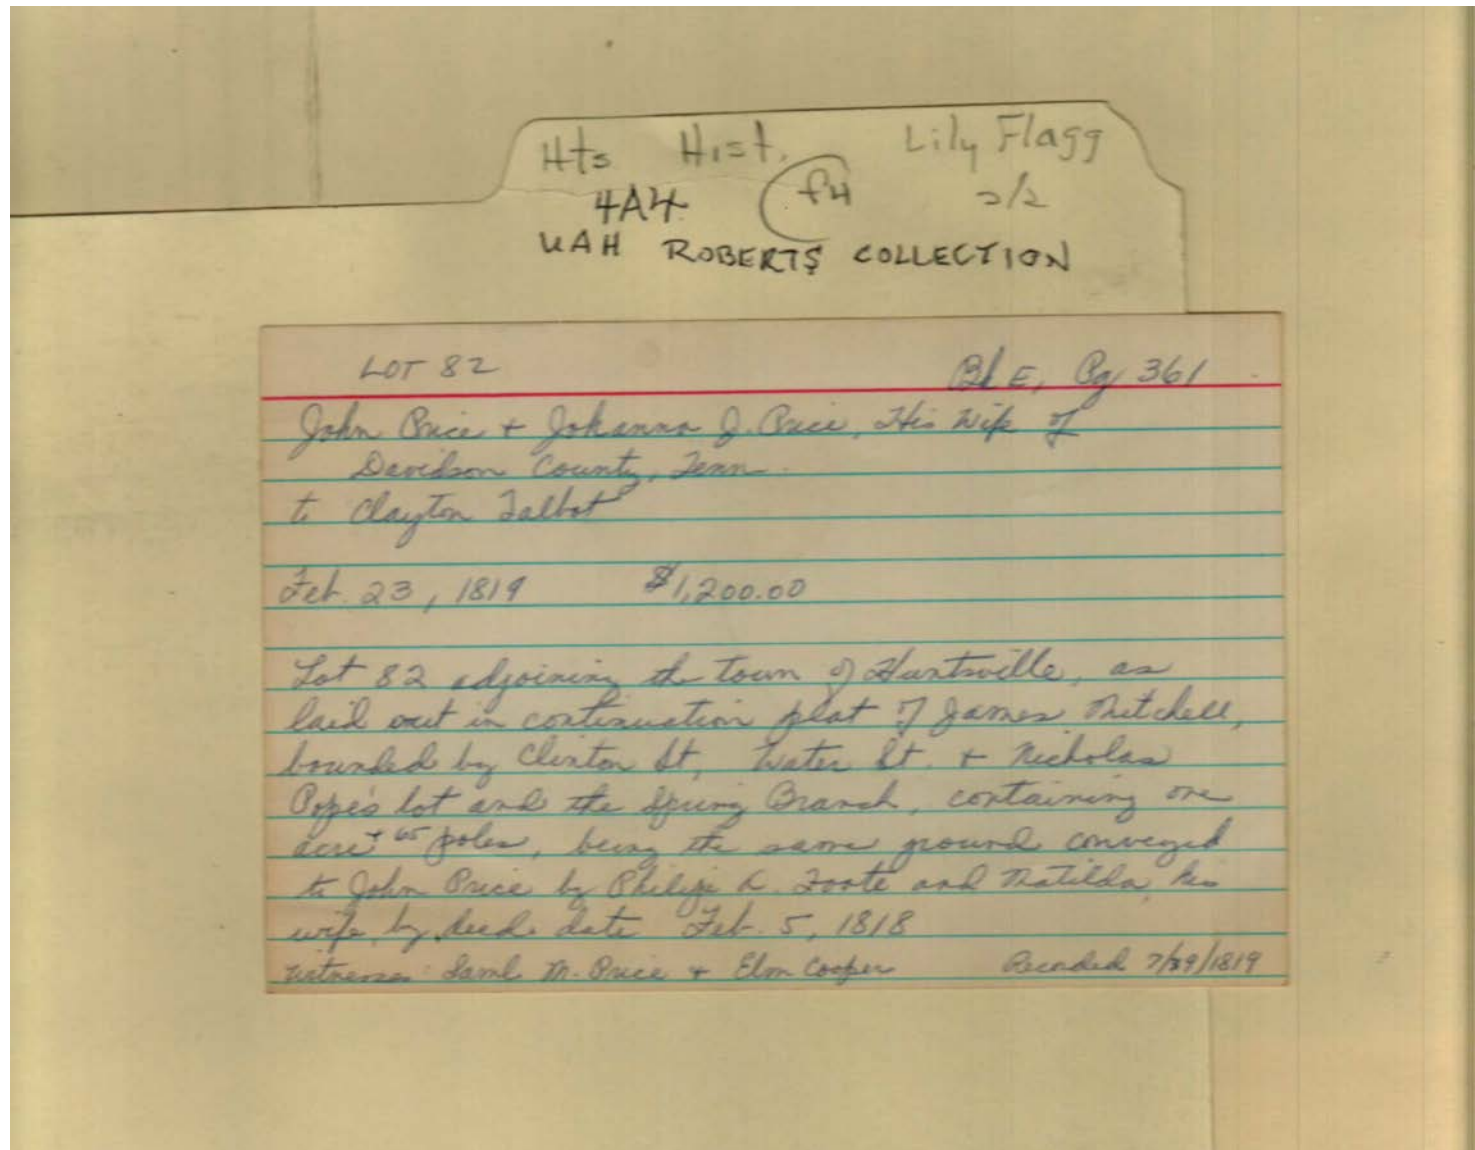 Hts Hist. Lily Flagg
4A4 f4 2/2
UAH ROBERTS COLLECTION
LOT 82 Bk E, Pg 361
John Price + Johanna J. Price, His Wife of
Davidson County, Tenn.
to Clayton Talbot
Feb. 23, 1819 $1,200.00
Lot 82 adjoining the town of Huntsville, as
laid out in continuation plat of James Mitchell,
bounded by Clinton St, Water St. + Nicholas
Pope's lot and the Spring Branch, containing one
acre + 65 poles, being the same ground conveyed
to John Price by Philip A. Foote and Matilda, his
wife, by deed date Feb. 5, 1818
Witnesses: Saml M. Price + Elm Cooper Recorded 7/29/1819